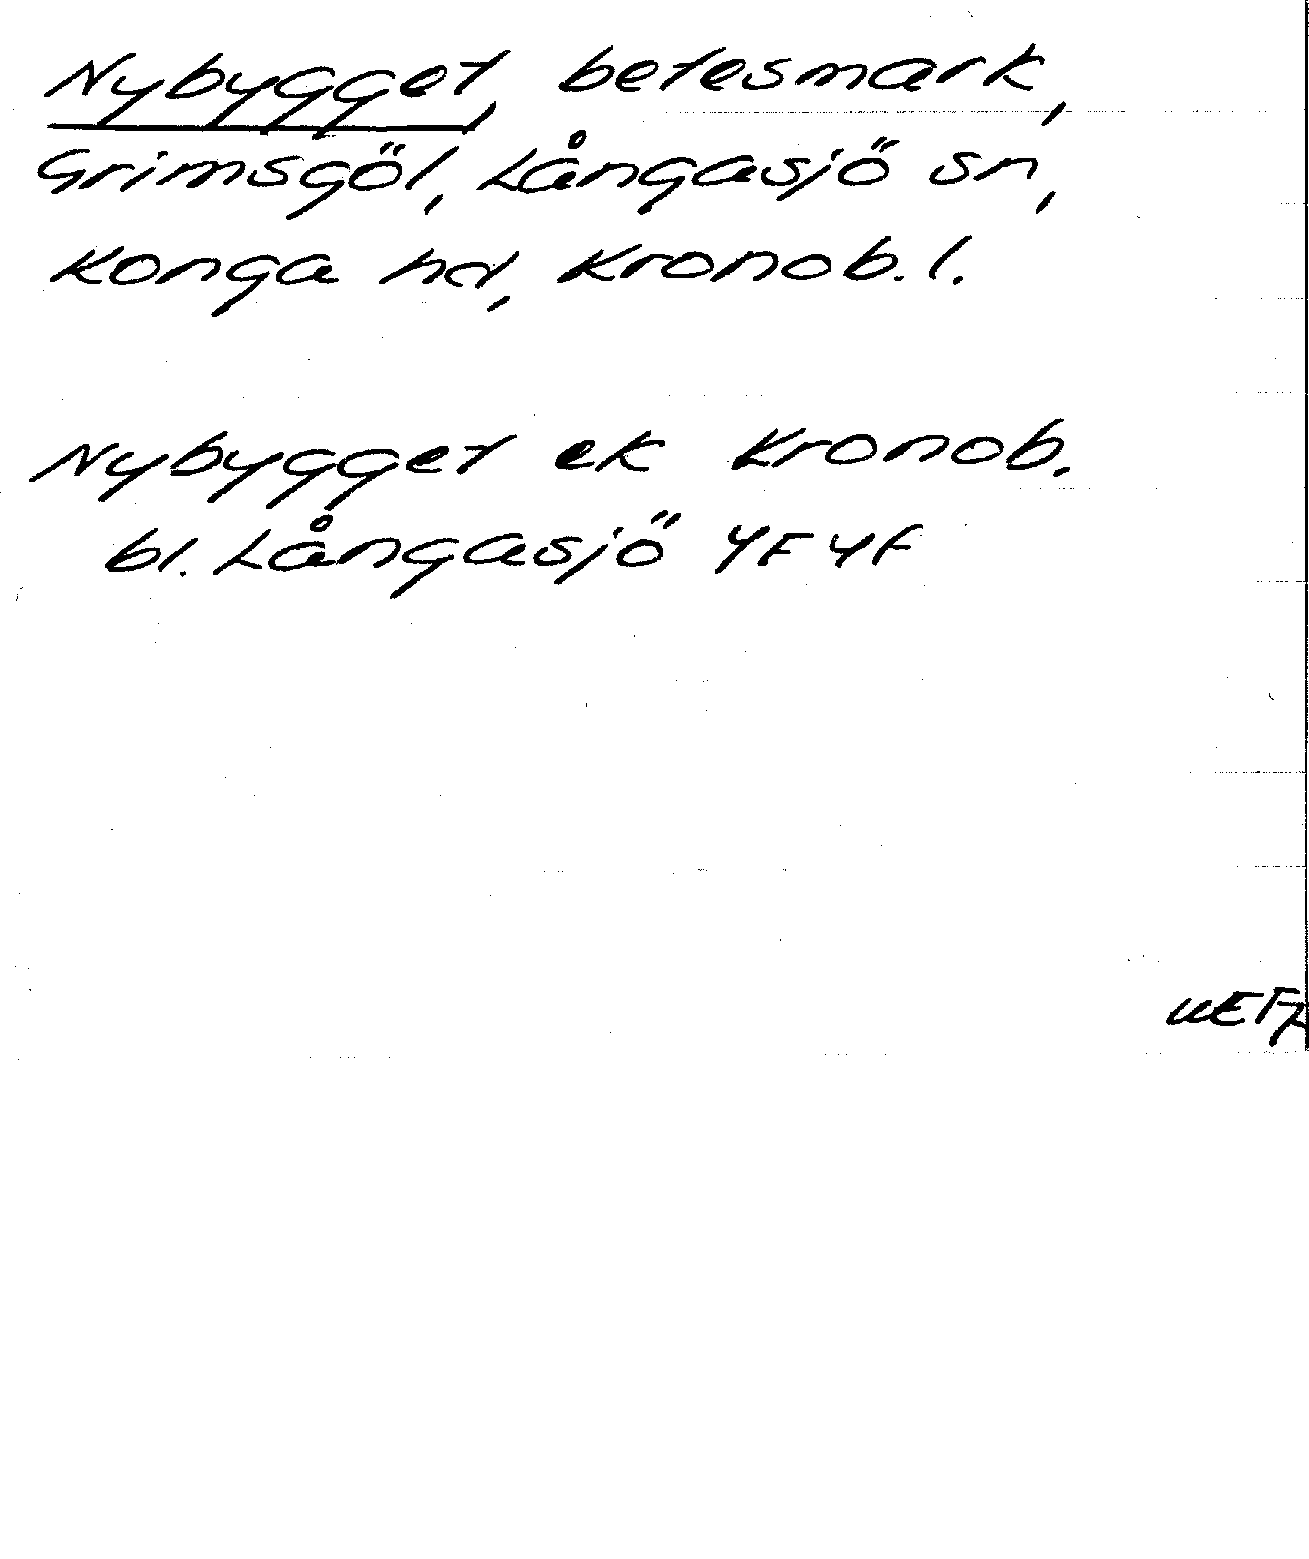 Nybygget, betesmark,
Grimsgöl, Långasjö sn,
Konga hd, Kronob. l.
Nybygget ek Kronob.
bl. Långasjö 4F 4f